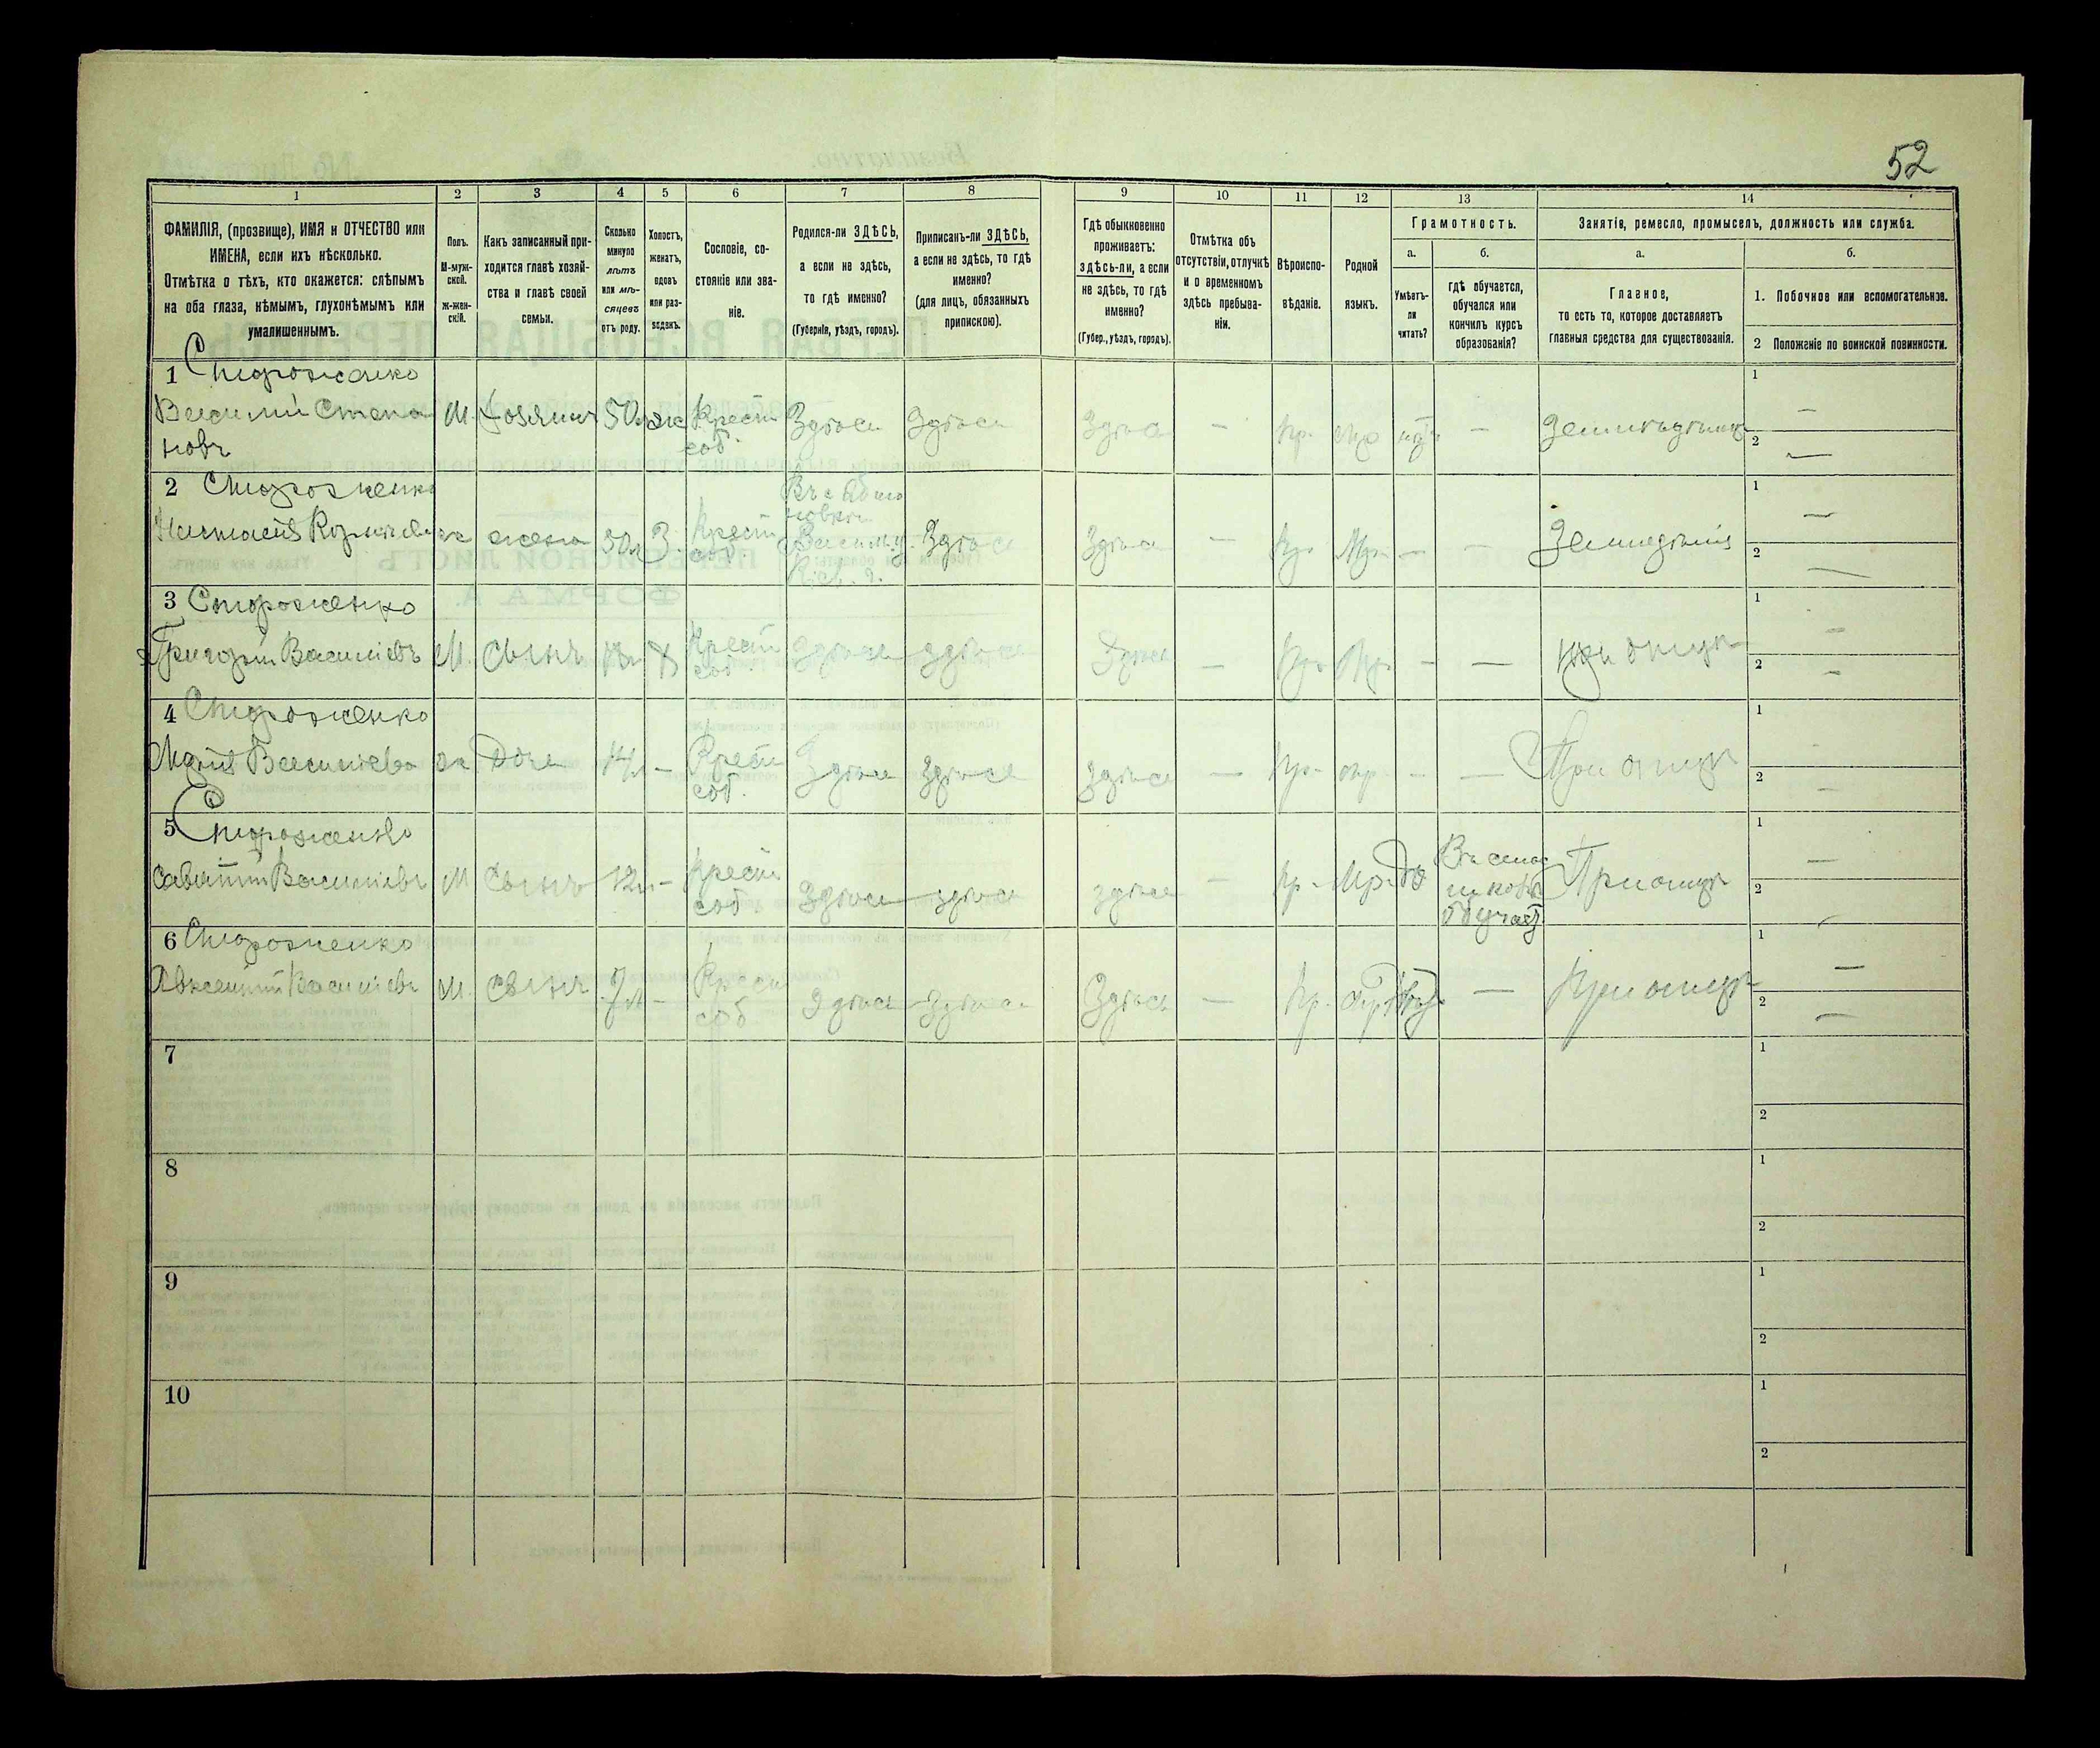 52
1
2
3
4
5
6
7
8
9
10
11
12
13
14
ФАМИЛІЯ, (прозвище), ИМЯ и ОТЧЕСТВО или
ИМЕНА, если ихъ нѣсколько.
Отмѣтка о тѣхъ, кто окажется: слѣпымъ
на оба глаза, нѣмымъ, глухонѣмымъ или
умалишеннымъ.
Полъ.
М-муж-
ской.
Ж-жен-
скій.
Какъ записанный при-
ходится главѣ хозяй-
ства и главѣ своей
семьи.
Сколько
минуло
лѣтъ
или мѣ-
сяцевъ
отъ роду.
Холостъ,
женатъ,
вдовъ
или раз-
веденъ.
Сословіе, со-
стояніе или зва-
ніе.
Родился-ли ЗДѢСЬ,
а если не здѣсь,
то гдѣ именно?
(Губернія, уѣздъ, городъ).
Приписанъ-ли ЗДѢСЬ,
а если не здѣсь, то гдѣ
именно?
(для лицъ, обязанныхъ
припискою).
Гдѣ обыкновенно
проживаетъ:
здѣсь-ли, а если
не здѣсь, то гдѣ
именно?
(Губер., уѣздъ, городъ).
Отмѣтка объ
отсутствіи, отлучкѣ
и о временномъ
здѣсь пребыва-
ніи.
Вѣроиспо-
вѣданіе.
Родной
языкъ.
Грамотность.
а.
Умѣетъ-
ли
читать?
б.
гдѣ обучается,
обучался или
кончилъ курсъ
образованія?
Занятія, ремесло, промыселъ, должность или служба.
а.
Главное,
то есть то, которое доставляетъ
главныя средства для существованія.
б.
1. Побочное или вспомогательное.
2 Положеніе по воинской повинности.
1 Стороженко
Василий Степа
новъ
М. Хозяинъ 50л ж Крест
соб. Здѣсь Здѣсь Здѣсь — пр. мр нѣтъ — Земледѣлец
1 —
2 —
2 Стороженко
Настасия
ж жена 50л З. Крест
соб.
Василь. у.
Кіев. г.
Здѣсь Здѣсь — пр. Мр. — — Земледѣлия
1 —
2 —
3 Стороженко
Григорий Василіевъ М. Сынъ Х Крест
соб. Здѣсь здѣсь Здѣсь — Пр. Мр. — — при отцѣ
1 —
2 —
4 Стороженко
Мария Василиева ж Дочь 14л — Крест
соб. Здѣсь здѣсь здѣсь — пр. мр. — — При отцѣ
1
2 —
5 Стороженко
Саватий Василиевъ М Сынъ 12л — Крест
соб. Здѣсь здѣсь здѣсь — пр. Мр. да
Въ сель
школѣ
обучает
При отцѣ
1 —
2 —
6 Стороженко
Авксентий Василиевъ М. сынъ 7л — Крест
соб Здѣсь Здѣсь Здѣсь — пр. мр. — При отцѣ
1 —
2 —
7
1
2
8
1
2
9
1
2
10
1
2